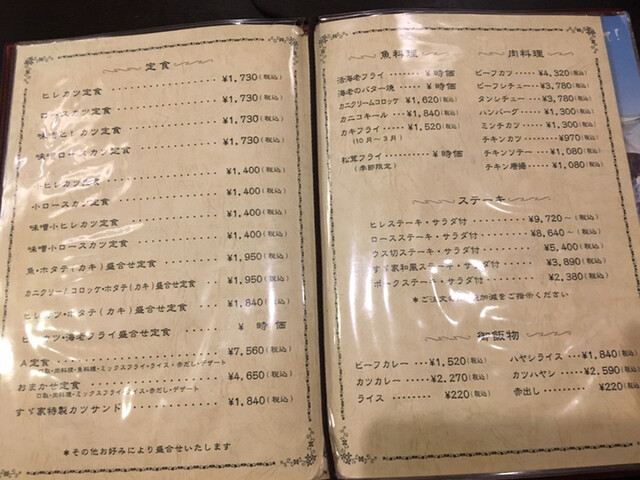 定食
ヒレカツ定食 ¥1,730(税込)
ロースカツ定食 ¥1,730(税込)
味噌ヒレカツ定食 ¥1,730(税込)
味噌ロースカツ定食 ¥1,730(税込)
小ヒレカツ定食 ¥1,400(税込)
小ロースカツ定食 ¥1,400(税込)
味噌小ヒレカツ定食 ¥1,400(税込)
味噌小ロースカツ定食 ¥1,400(税込)
魚・ホタテ(カキ)盛合せ定食 ¥1,950(税込)
カニクリームコロッケ・ホタテ(カキ)盛合せ定食 ¥1,950(税込)
ヒレカツ・ホタテ(カキ)盛合せ定食 ¥1,840(税込)
ヒレカツ・海老フライ盛合せ定食 ¥ 時価
A定食 ¥7,560(税込)
口取・肉料理・魚料理・ミックスフライ・ライス・赤だし・デザート
おまかせ定食 ¥4,650(税込)
口取・肉料理・ミックスフライ・ライス・赤だし・デザート
すゞ家特製カツサンド ¥1,840(税込)
*その他お好みにより盛合せいたします
魚料理
活海老フライ ¥ 時価
海老のバター焼 ¥ 時価
カニクリームコロッケ ¥1,620(税込)
カニコキール ¥1,840(税込)
カキフライ ¥1,520(税込)
(10月〜3月)
松茸フライ ¥ 時価
(季節限定)
肉料理
ビーフカツ ¥4,320(税込)
ビーフシチュー ¥3,780(税込)
タンシチュー ¥3,780(税込)
ハンバーグ ¥1,300(税込)
ミンチカツ ¥1,300(税込)
チキンカツ ¥970(税込)
チキンソテー ¥1,080(税込)
チキン唐揚 ¥1,080(税込)
ステーキ
ヒレステーキ・サラダ付 ¥9,720〜(税込)
ロースステーキ・サラダ付 ¥8,640〜(税込)
ウス切ステーキ・サラダ付 ¥5,400(税込)
すゞ家和風ステーキ・サラダ付 ¥3,890(税込)
ポークステーキ・サラダ付 ¥2,380(税込)
*ご注文の 加減をご指示ください
御飯物
ビーフカレー ¥1,520(税込)
カツカレー ¥2,270(税込)
ライス ¥220(税込)
ハヤシライス ¥1,840(税込)
カツハヤシ ¥2,590(税込)
赤出し ¥220(税込)